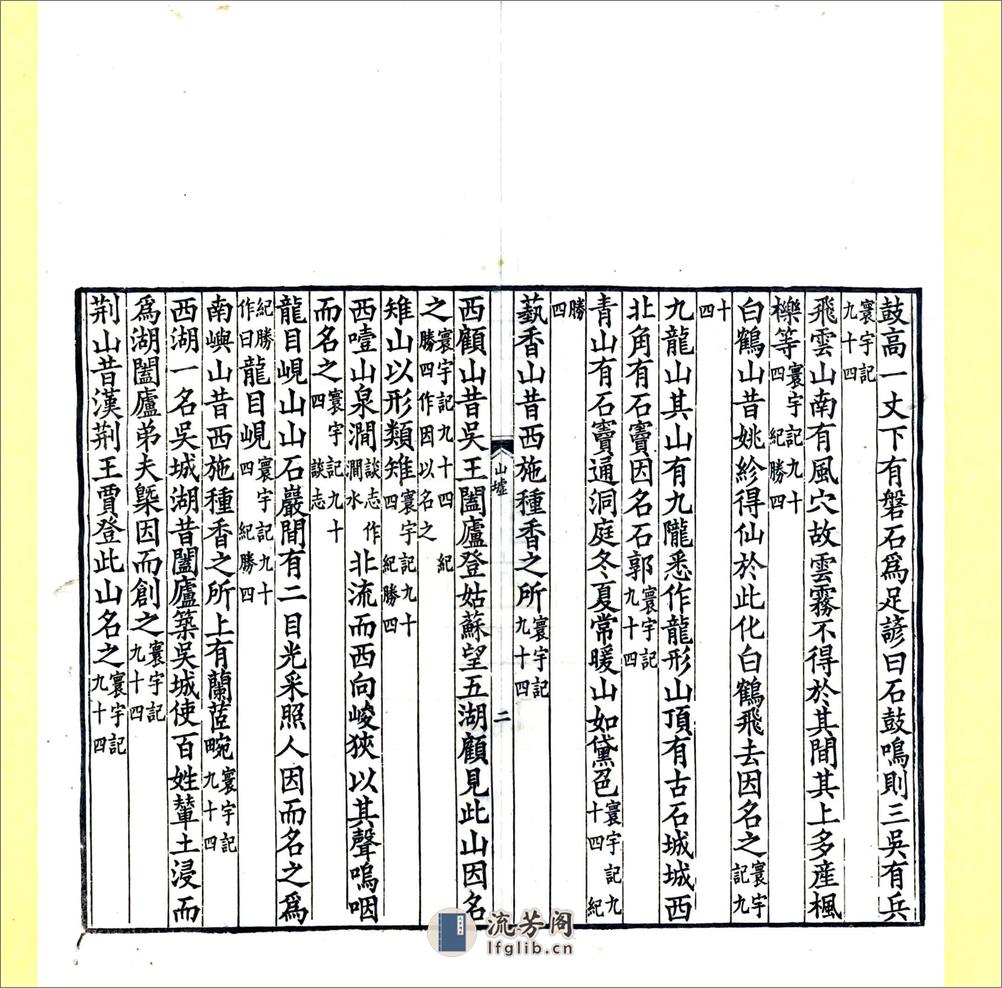 鼓高一丈下有磐石爲足諺曰石鼓鳴則三吳有兵
寰宇記九十四
飛雲山南有風穴故雲霧不得於其間其上多産楓
櫟等寰宇記九十四 紀勝四
白鶴山昔姚紾得仙於此化白鶴飛去因名之寰宇記九
十四
九龍山其山有九隴悉作龍形山頂有古石城城西
北角有石竇因名石郭寰宇記九十四
青山有石竇通洞庭冬夏常暖山如黛色寰宇記九十四 紀
勝四
藝香山昔西施種香之所寰宇記九十四
山墟 二
西顧山昔吳王闔廬登姑蘇望五湖顧見此山因名
之寰宇記九十四 紀勝四作因以名之
雉山以形類雉寰宇記九十四 紀勝四
西噎山泉澗談志作澗水北流而西向峻狹以其聲嗚咽
而名之寰宇記九十四 談志
龍目峴山山石巖間有二目光采照人因而名之爲
紀勝作曰龍目峴寰宇記九十四 紀勝四
南嶼山昔西施種香之所上有蘭茝畹寰宇記九十四
西湖一名吳城湖昔闔廬築吳城使百姓輦土浸而
爲湖闔廬弟夫槩因而創之寰宇記九十四
荆山昔漢荆王賈登此山名之寰宇記九十四
流芳阁
lfglib.cn